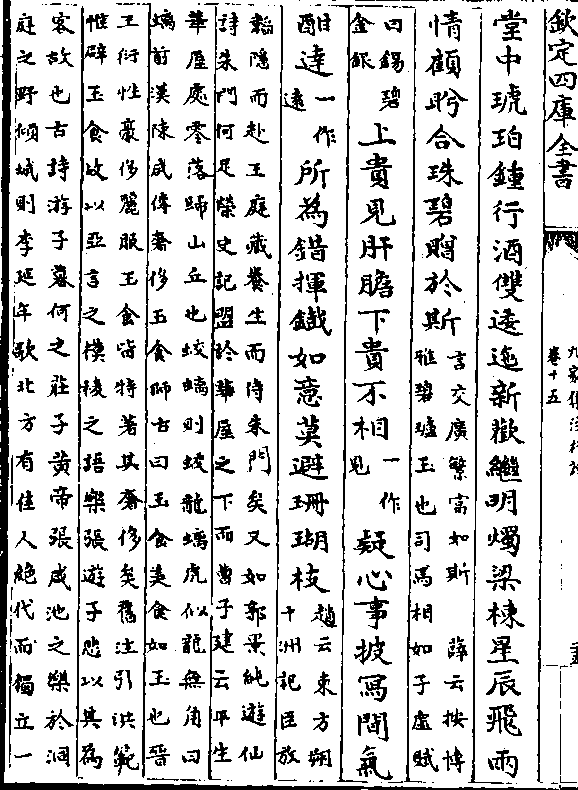 欽定四庫全書
卷十五
堂中琥珀鍾行酒雙逶迤新歡繼明燭梁棟星辰飛兩
情顧盻合珠碧贈於斯言交廣繁富如斯 薛云按博
雅碧瓐玉也司馬相如子虛賦
曰錫碧
金銀
上貴見肝膽下貴不相一作見疑心事披寫間氣
酣達一作遠所為錯揮鐵如意莫避珊瑚枝趙云東方朔
十洲記臣放
韜隱而赴王庭藏養生而侍朱門矣又如郭景純遊仙
詩朱門何足榮史記盟於華屋之下而曹子建云平生
華屋處零落歸山丘也蛟螭則蛟龍螭虎似龍無角曰
螭前漢陳咸傳奢侈玉食師古曰玉食美食如玉也晉
王衍性豪侈麗服玉食皆特著其奢侈矣舊注引洪範
惟辟玉食故以亞言之模稜之語樂張遊子悲以其為
客故也古詩游子暮何之莊子黄帝張咸池之樂於洞
庭之野傾城則李延年歌北方有佳人絶代而獨立一